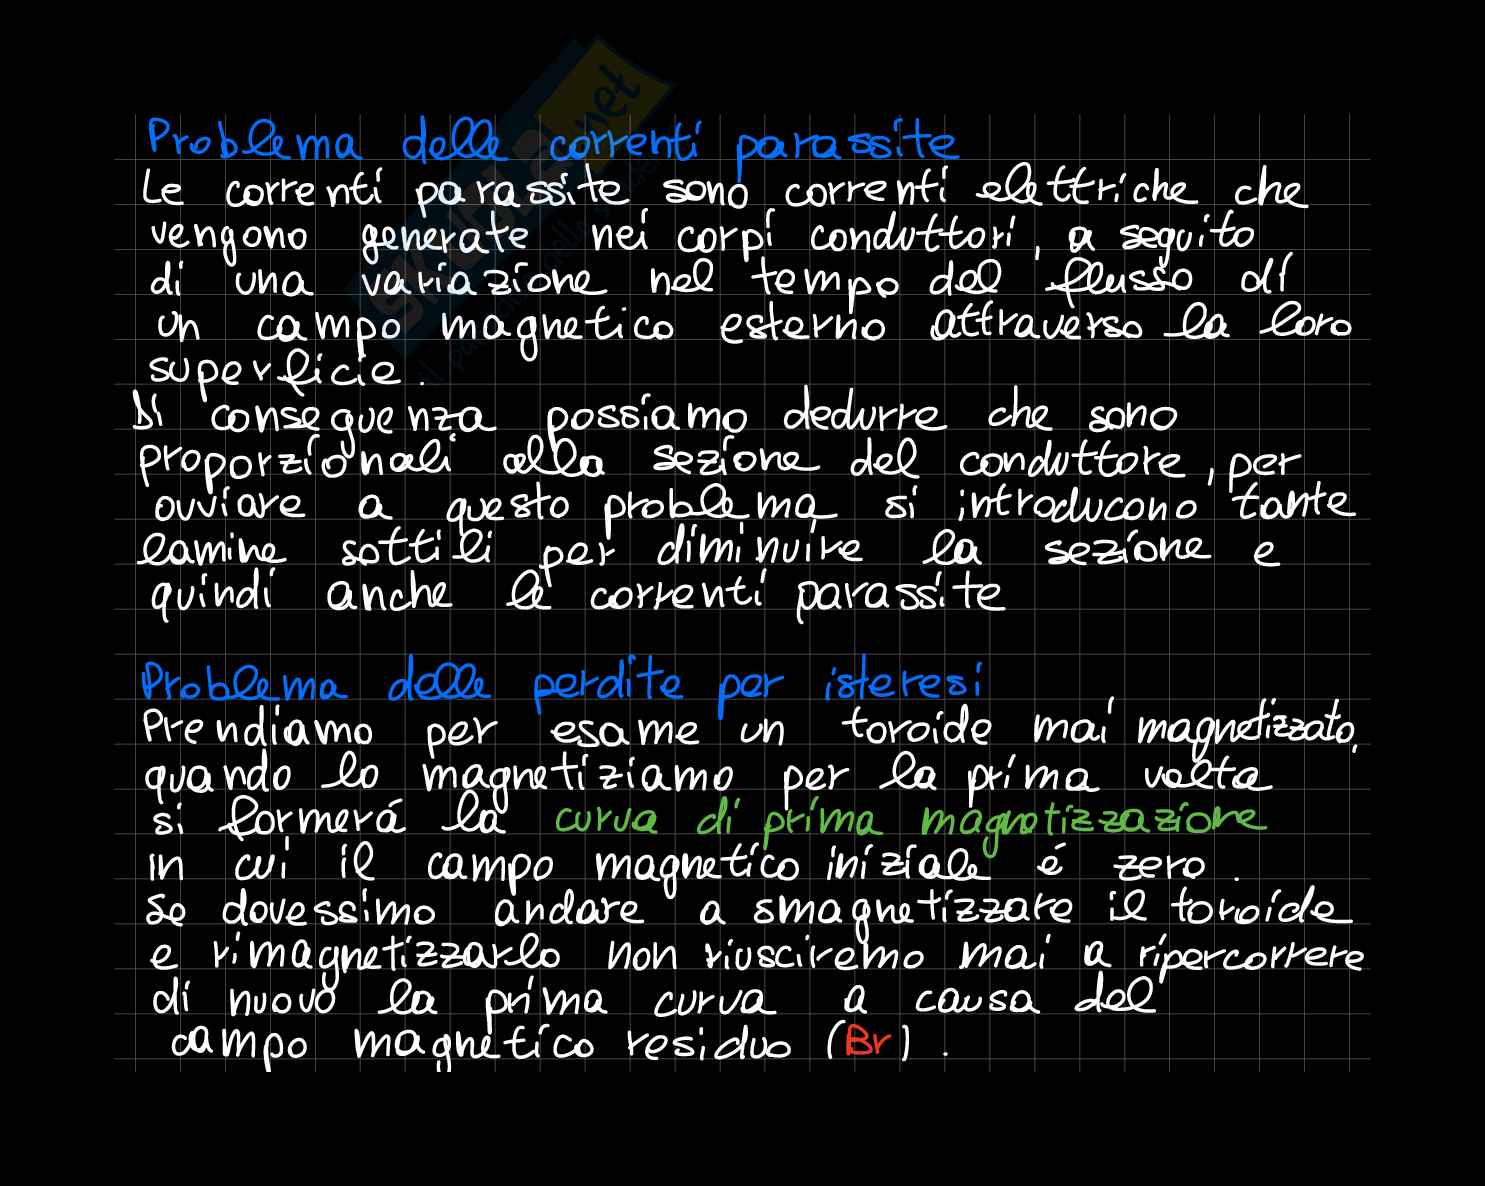 Problema delle correnti parassite
Le correnti parassite sono correnti elettriche che
vengono generate nei corpi conduttori, a seguito
di una variazione nel tempo del flusso di
un campo magnetico esterno attraverso la loro
superficie.
Di conseguenza possiamo dedurre che sono
proporzionali alla sezione del conduttore, per
ovviare a questo problema si introducono tante
lamine sottili per diminuire la sezione e
quindi anche le correnti parassite
Problema delle perdite per isteresi
Prendiamo per esame un toroide mai magnetizzato,
quando lo magnetiziamo per la prima volta
si formerá la curva di prima magnetizzazione
in cui il campo magnetico iniziale é zero.
Se dovessimo andare a smagnetizzare il toroide
e rimagnetizzarlo non riusciremo mai a ripercorrere
di nuovo la prima curva a causa del
campo magnetico residuo (Br).